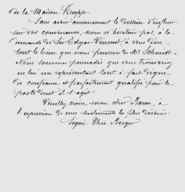 de la Maison Krupp.
Sans avoir aucunement le dessein d'influer
sur vos convenances, nous n'hésitons pas, à la
demande de Sir Edgar Vincent, à vous dire
tout le bien que nous pensons de Mr Schmidt.
Nous sommes persuadés que vous trouverez
en lui un représentant tout à fait digne
de confiance, et parfaitement qualifié pour le
poste dont il s'agit.
Veuillez croire, mon cher Baron, à
l'expression de mes sentiments les plus dévoués.
Signé: